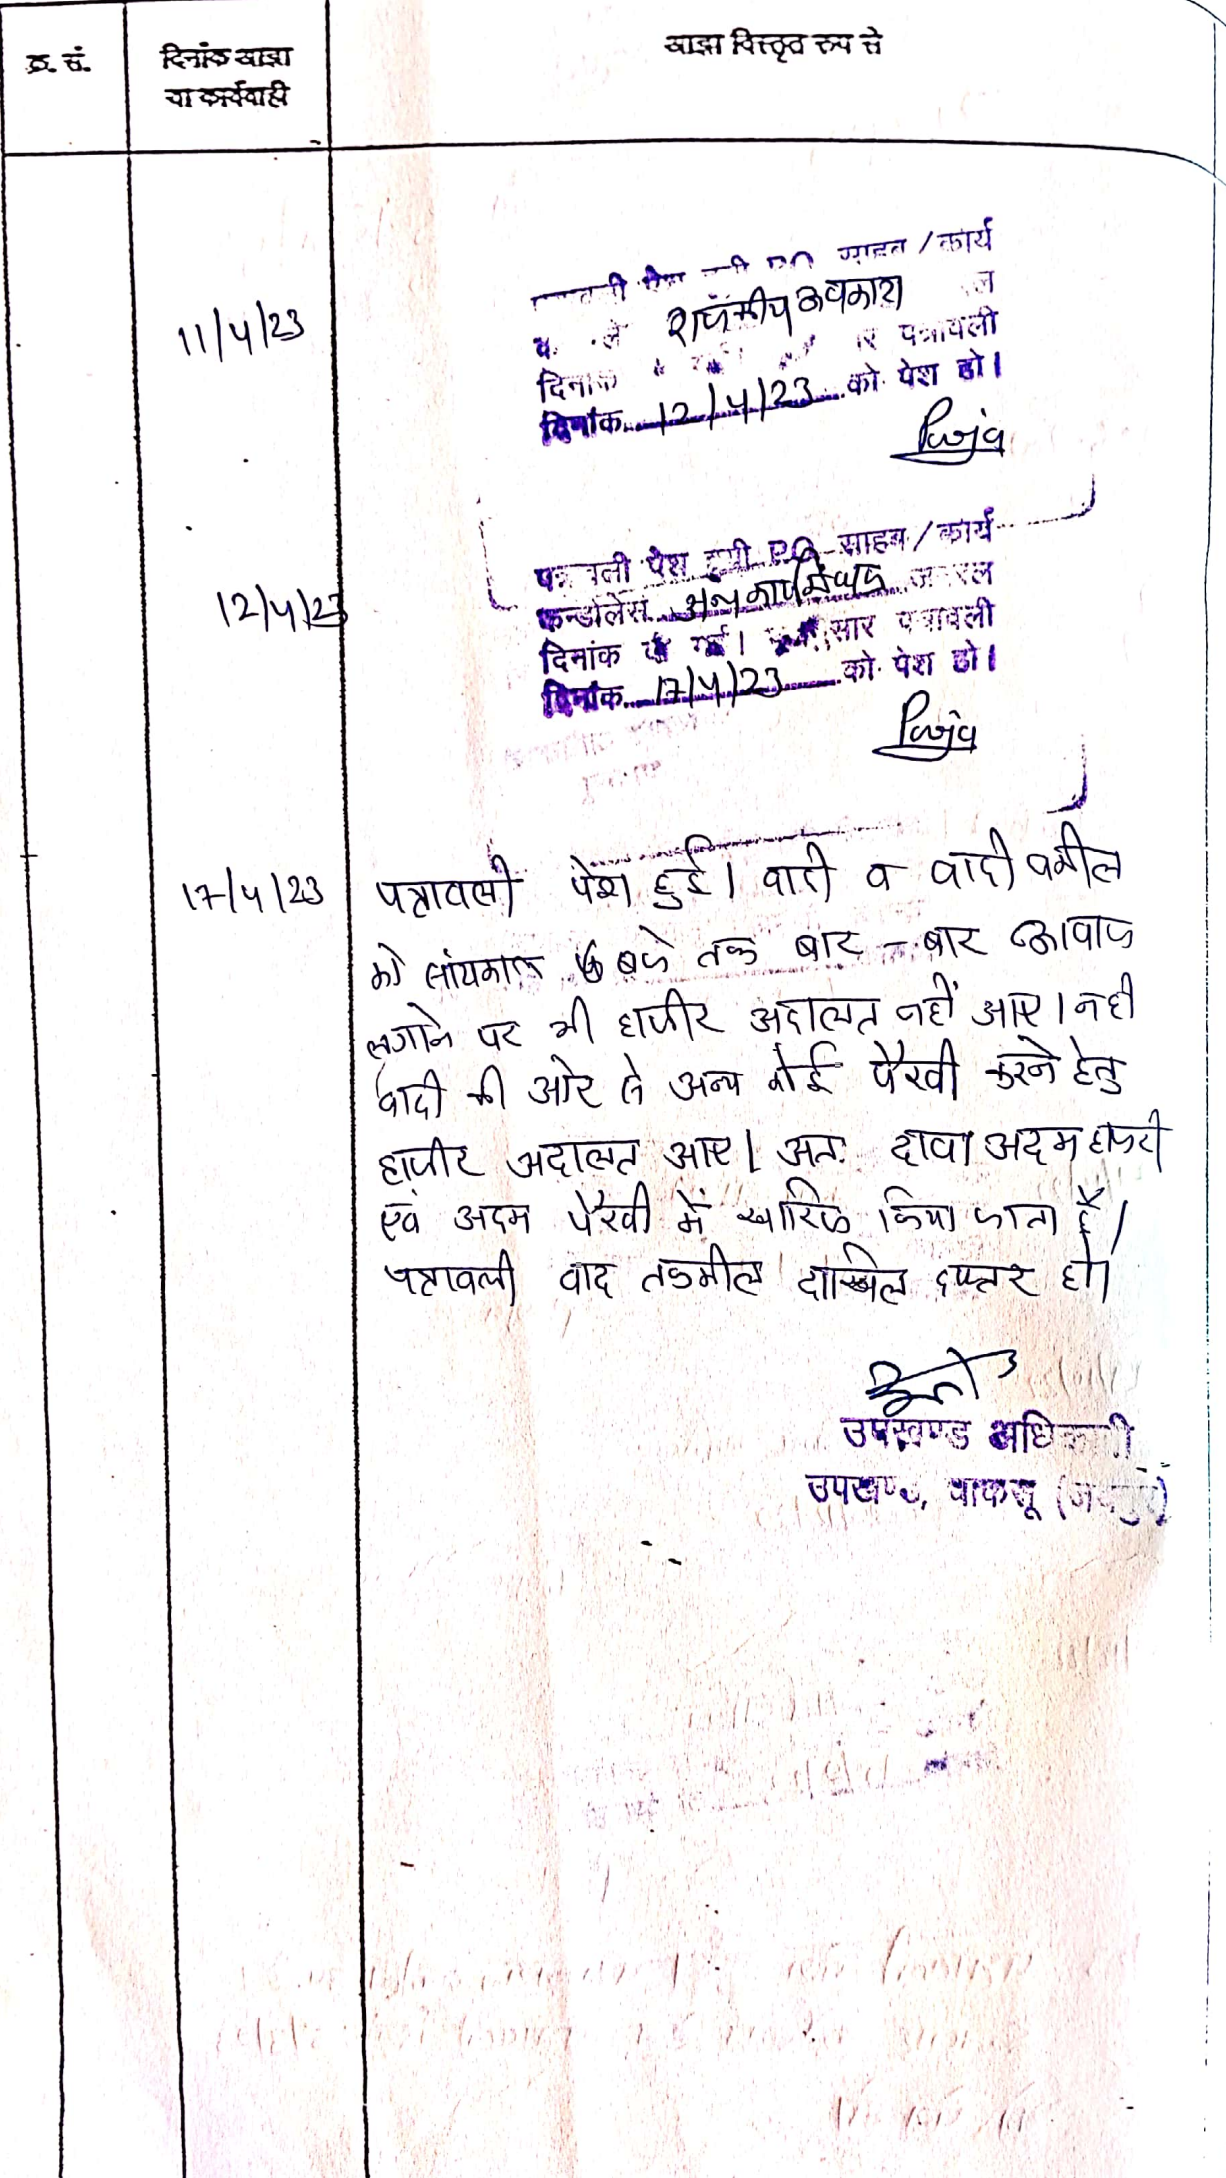 क्र. सं.
दिनांक आज्ञा
या कार्यवाही
आज्ञा विस्तृत रूप से
11/4/23
पेश साहब / कार्य
राजकीय अवकाश
पत्रावली
दिनांक
दिनांक 12/4/23 को पेश हो।
Puja
12/4/23
पत्रावली पेश हुयी P.O. साहब / कार्य
कन्डोलेंस अन्य कार्य में व्यस्त जनरल
दिनांक दी गई। सार पत्रावली
दिनांक 17/4/23 को पेश हो।
Puja
17/4/23
पत्रावली पेश हुई। वादी व वादी वकील
को सांयकाल 6 बजे तक बार-बार आवाज
लगाने पर भी हाजीर अदालत नहीं आए। नही
वादी की ओर से अन्य कोई पैरवी करने हेतु
हाजीर अदालत आए। अतः दावा अदम हाजरी
एवं अदम पैरवी में खारिज किया जाता है।
पत्रावली वाद तकमील दाखिल दफ्तर हो।
उपखण्ड अधिकारी
उपखण्ड, चाकसू (जयपुर)